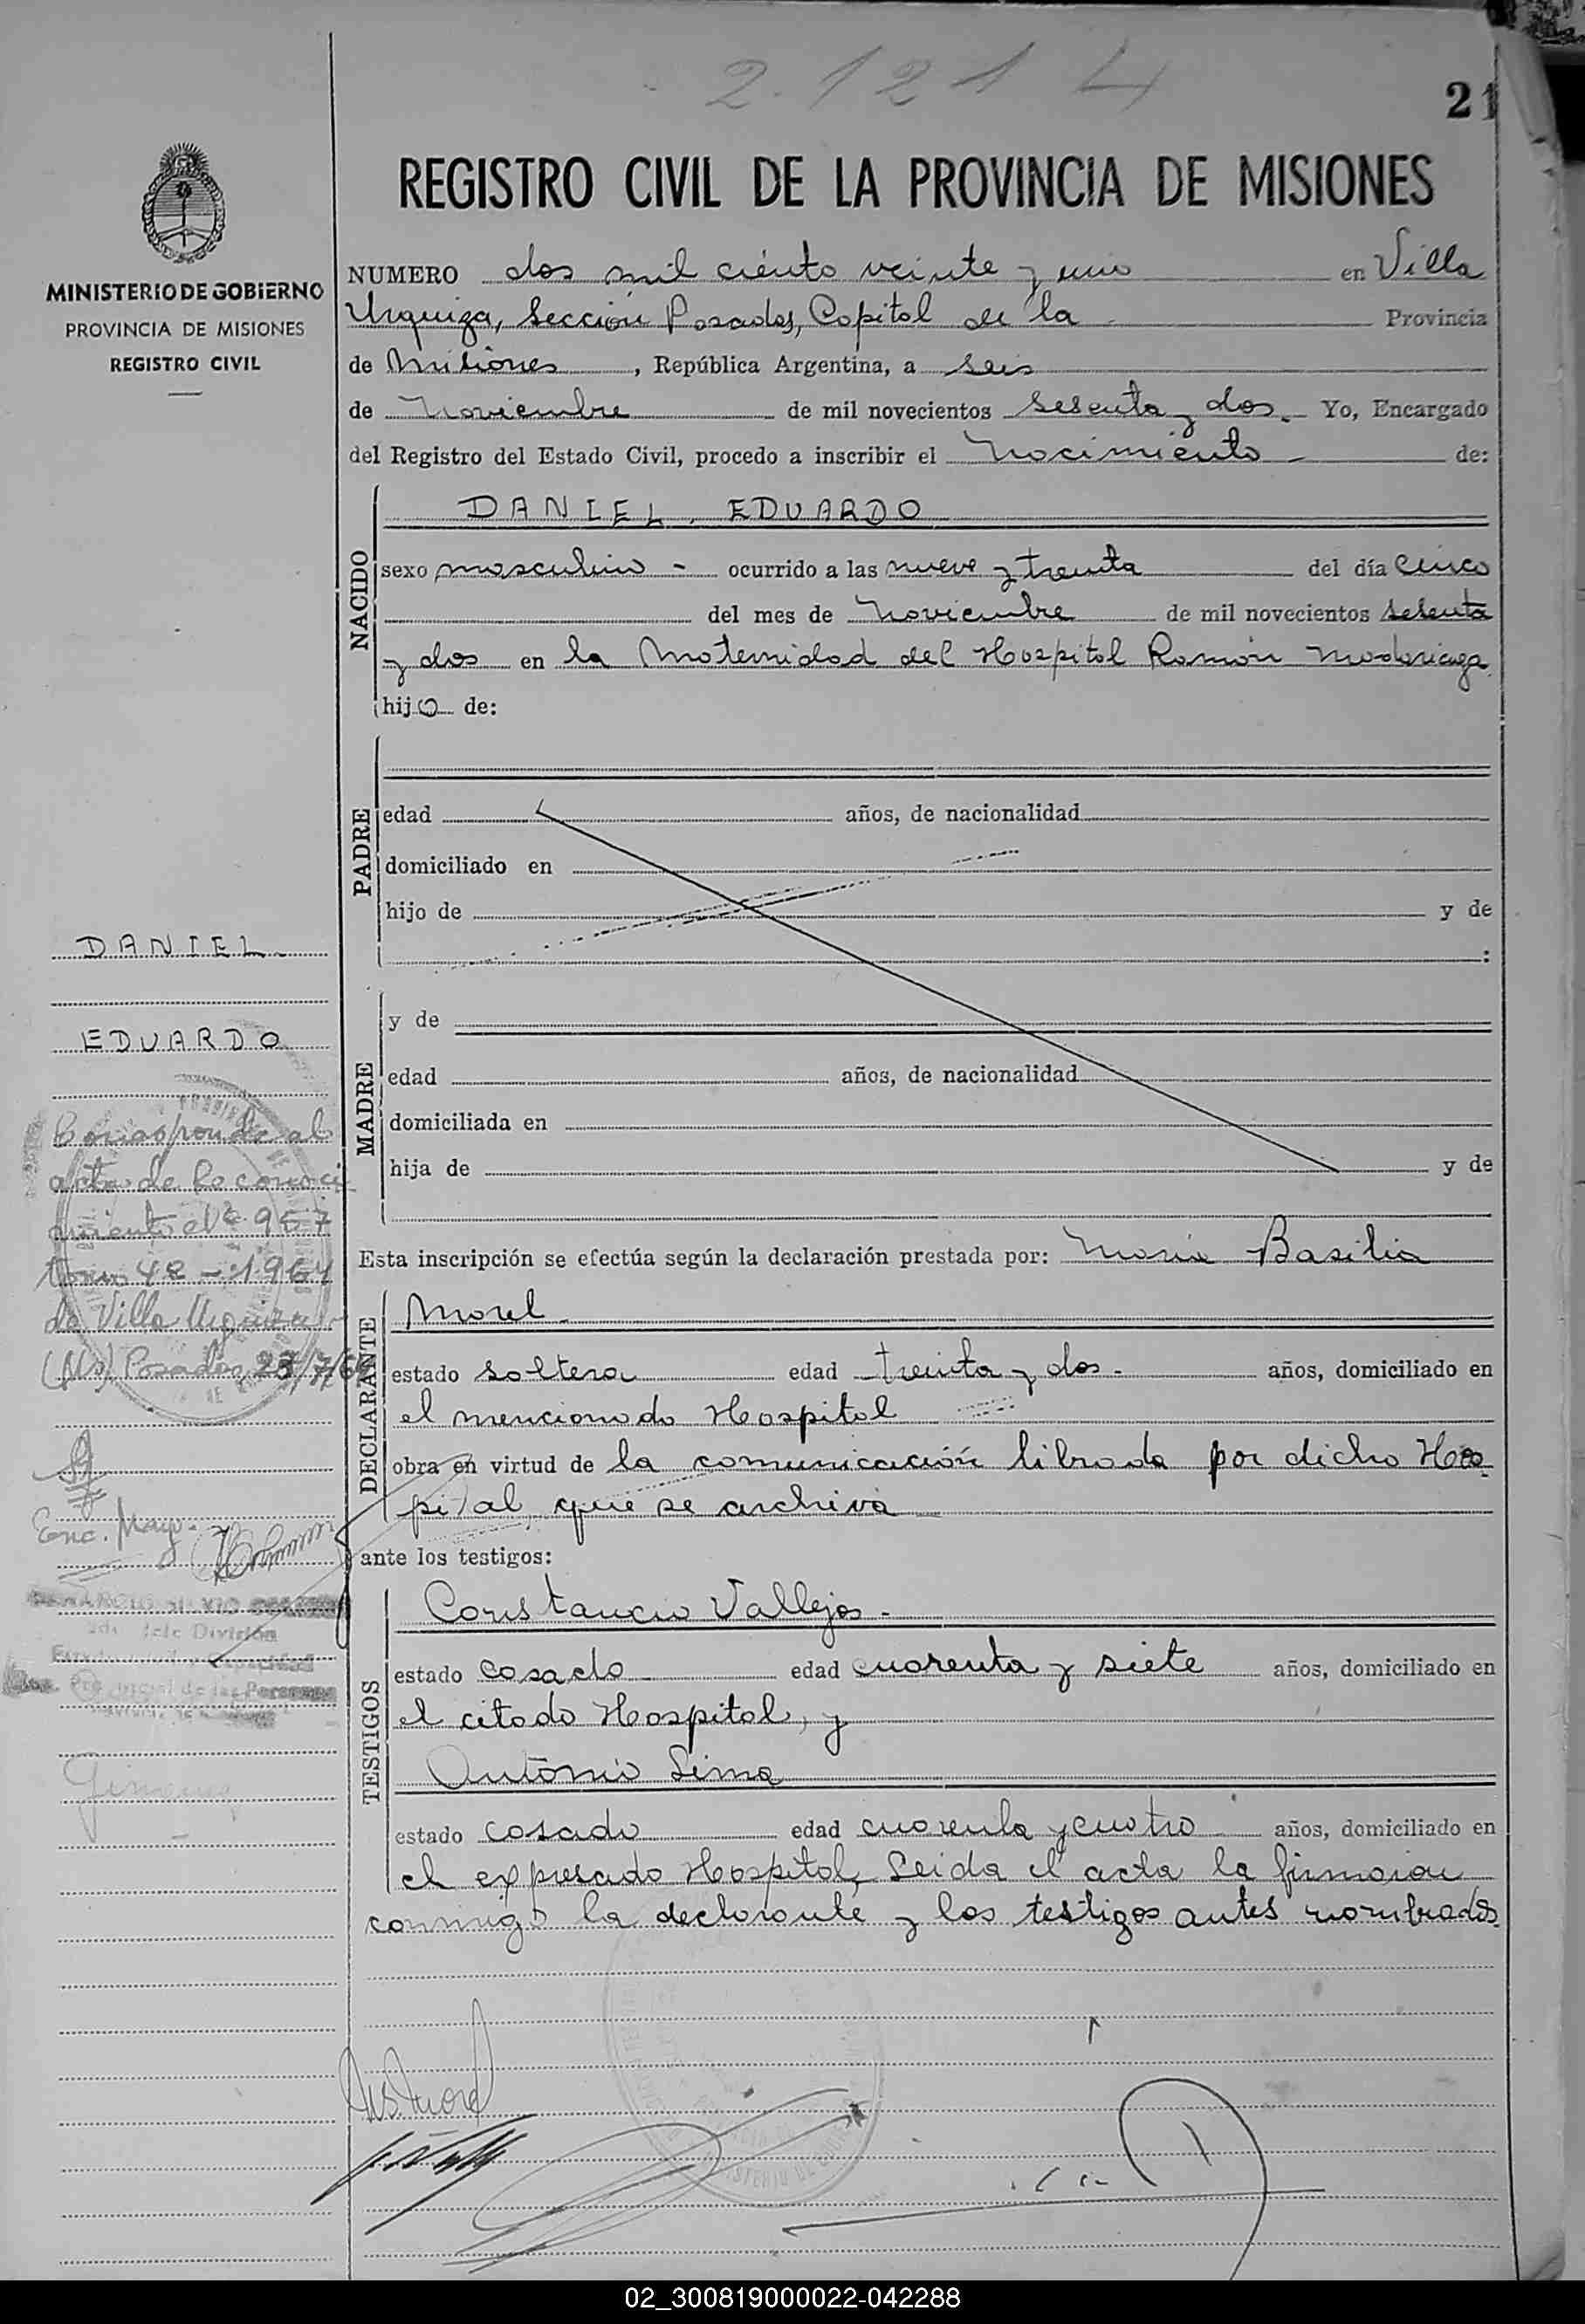 2.121 4
21
REGISTRO CIVIL DE LA PROVINCIA DE MISIONES
MINISTERIO DE GOBIERNO
PROVINCIA DE MISIONES
REGISTRO CIVIL
NUMERO dos mil ciento veinte y uno en Villa
Urquiza, Sección Posadas, Capital de la Provincia
de Misiones, República Argentina, a seis
de Noviembre de mil novecientos sesenta y dos. Yo, Encargado
del Registro del Estado Civil, procedo a inscribir el Nacimiento de:
NACIDO
DANIEL EDUARDO
sexo masculino - ocurrido a las nueve y treinta del día cinco
del mes de Noviembre de mil novecientos sesenta
y dos en la Maternidad del Hospital Ramón Madariaga
hijo de:
PADRE
edad años, de nacionalidad
domiciliado en
hijo de y de
:
MADRE
y de
edad años, de nacionalidad
domiciliada en
hija de y de
Esta inscripción se efectúa según la declaración prestada por: María Basilia
DECLARANTE
Morel
estado soltera edad treinta y dos - años, domiciliado en
el mencionado Hospital
obra en virtud de la comunicación librada por dicho Hos
pital, que se archiva
ante los testigos:
TESTIGOS
Constancio Vallejos -
estado casado edad cuarenta y siete años, domiciliado en
el citado Hospital, y
Antonio Lima
estado casado edad cuarenta y cuatro años, domiciliado en
el expresado Hospital, Leida el acta la firmaron
conmigo la declarante y los testigos antes nombrados
DANIEL
EDUARDO
Corresponde al
acta de Reconoci
miento Nº 967
tomo 4º - 1964
de Villa Urquiza
(Ms) Posadas, 28/7/
Enc. Mayo.
División
MBMorel
02_300819000022-042288